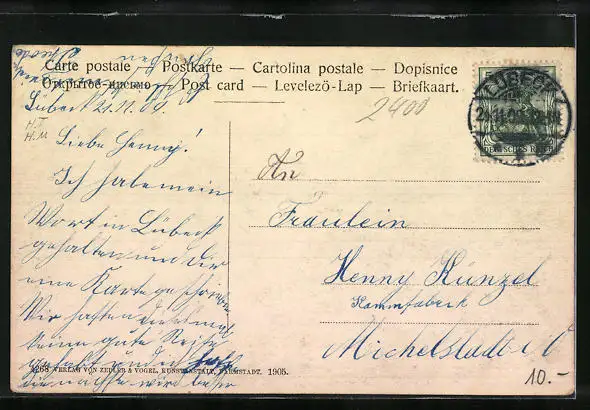 Carte postale — Postkarte — Cartolina postale — Dopisnice
Открытое письмо — Post card — Levelező-Lap — Briefkaart.
Lübeck 21.11.09.
2400
LÜBECK
DEUTSCHES REICH
Liebe Henny!
Ich habe mein
Wort in Lübeck
gehalten und dir
eine Karte geschrieben
Wir hatten
eine gute Reise
die nächte wird
An
Fräulein
Henny Künzel
Kammfabrik
Michelstadt i/O
1268 VERLAG VON ZEDLER & VOGEL, KUNSTANSTALT, DARMSTADT. 1905.
10.-